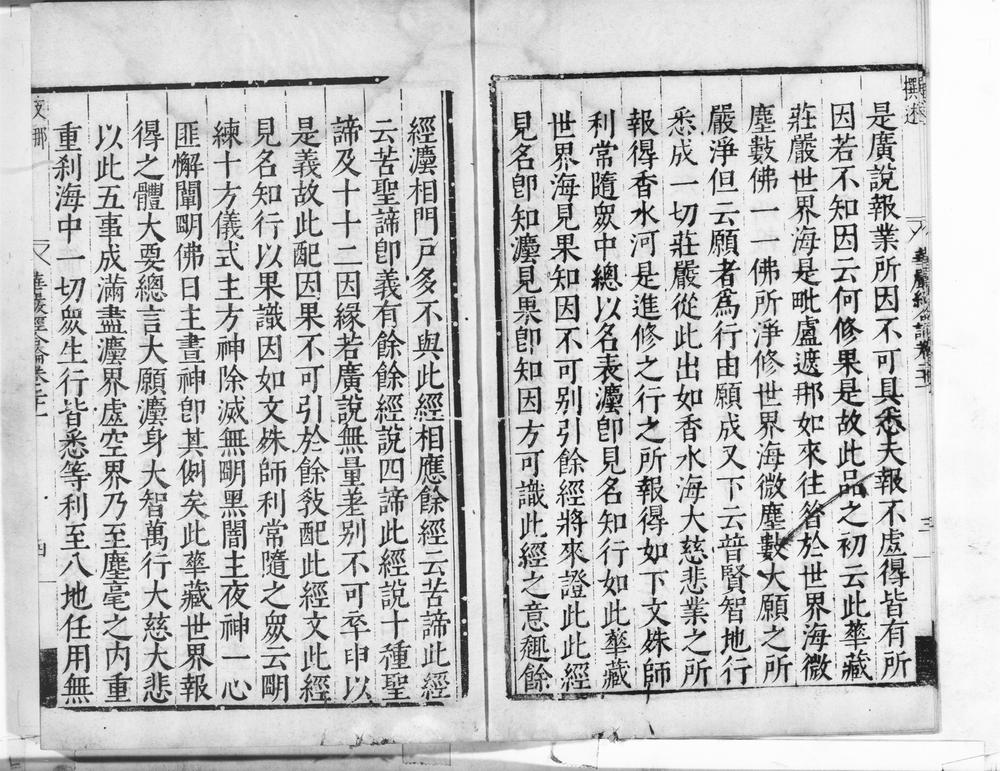 撰述
是廣說報業所因不可具悉夫報不處得皆有所
因若不知因云何修果是故此品之初云此華藏
莊嚴世界海是毗盧遮那如來往昝於世界海微
塵數佛一一佛所淨修世界海微塵數大願之所
嚴淨但云願者爲行由願成又下云普賢智地行
悉成一切莊嚴從此出如香水海大慈悲業之所
報得香水河是進修之行之所報得如下文殊師
利常隨衆中總以名表灋卽見名知行如此華藏
世界海見果知因不可别引餘經將來證此此經
見名卽知灋見果卽知因方可識此經之意趣餘
經灋相門戸多不與此經相應餘經云苦諦此經
云苦聖諦卽義有餘餘經說四諦此經說十種聖
諦及十十二因緣若廣說無量差别不可卒申以
是義故此配因果不可引於餘敎配此經文此經
見名知行以果識因如文殊師利常隨之衆云朙
練十方儀式主方神除滅無朙黑闇主夜神一心
匪懈闡朙佛日主晝神卽其例矣此華藏世界報
得之體大要總言大願灋身大智萬行大慈大悲
以此五事成滿盡灋界虛空界乃至塵毫之內重
重刹海中一切衆生行皆悉等利至八地任用無